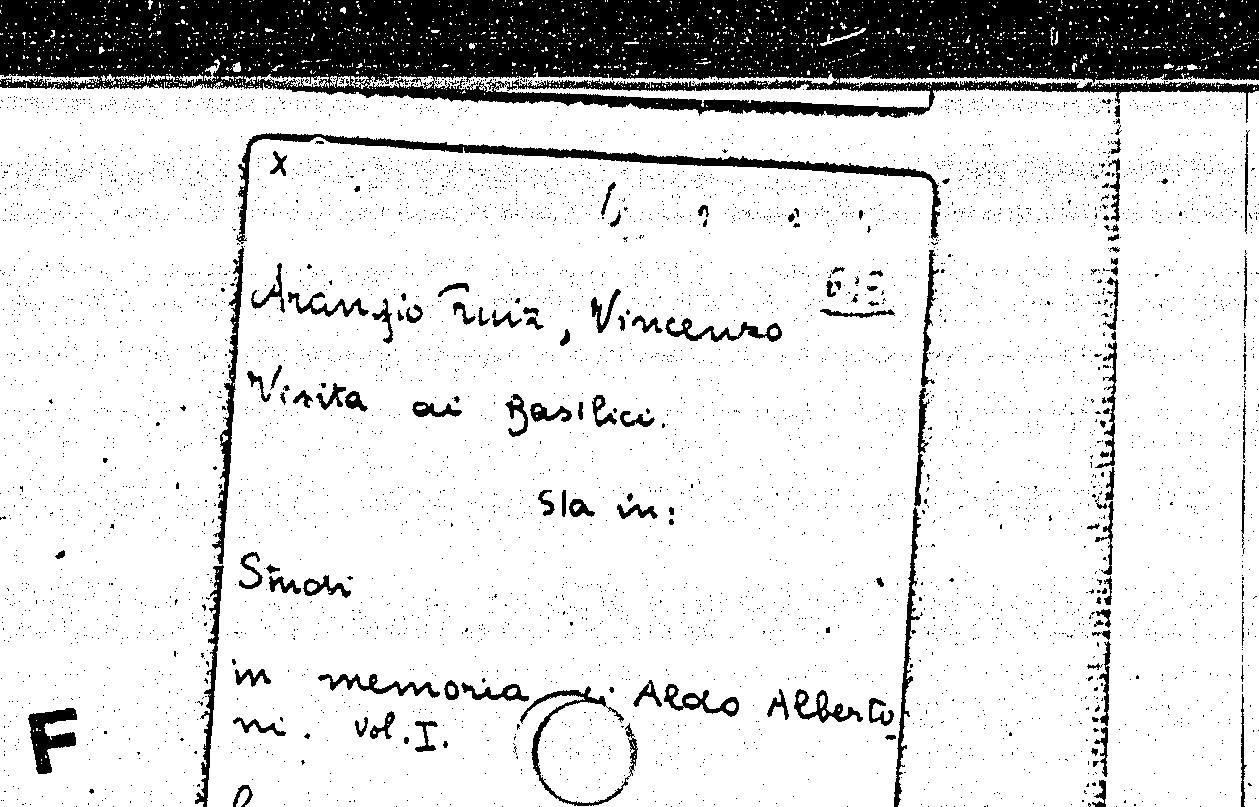 x
Arangio Ruiz, Vincenzo
Visita ai Basilici.
Sta in:
Studi
in memoria di Aldo Alberto
ni. vol. I.
F